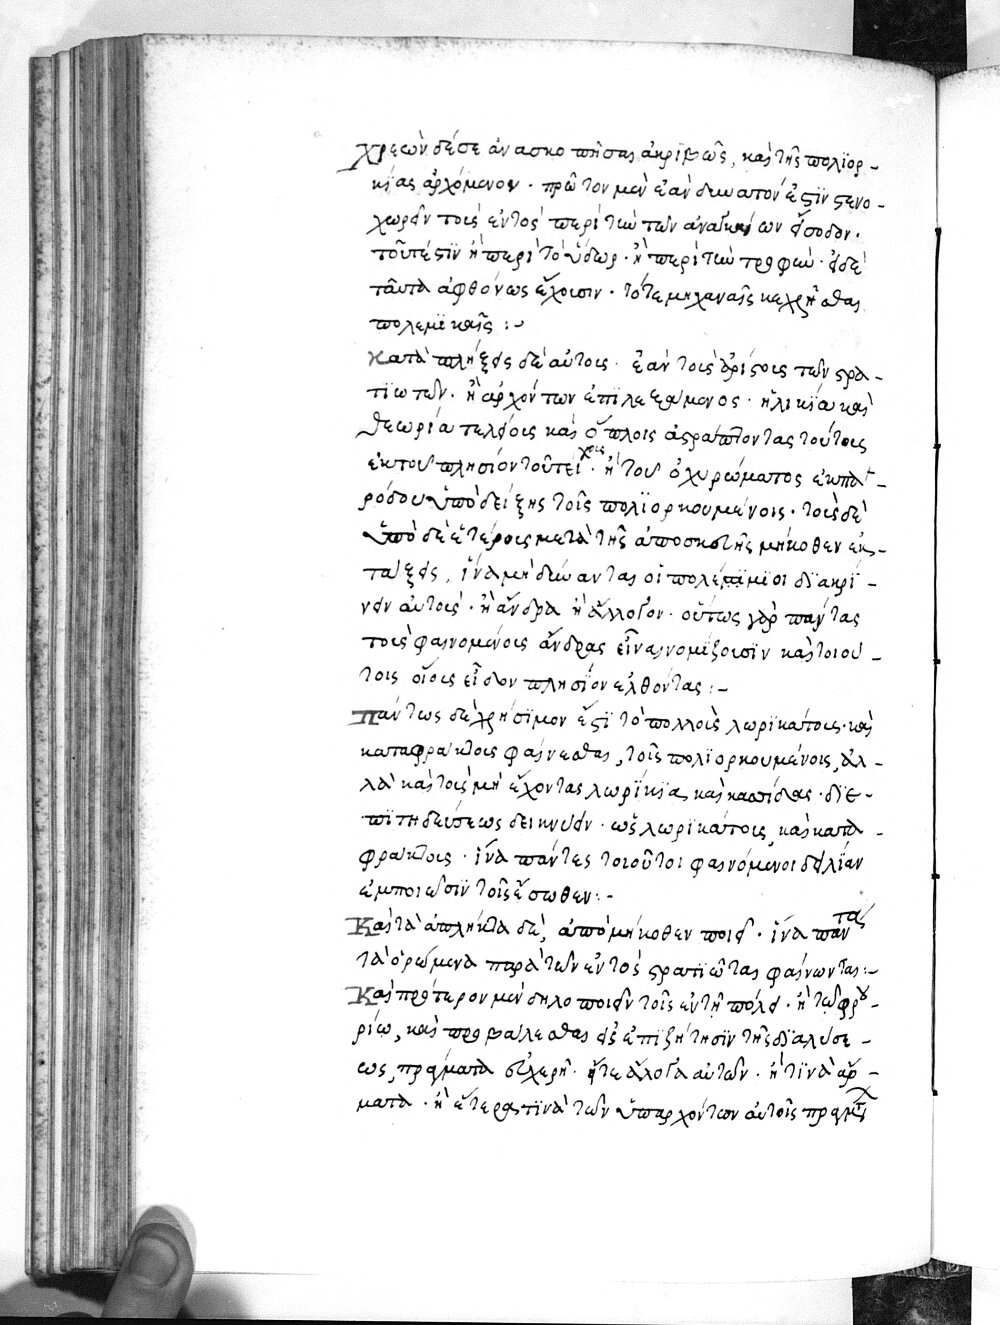 χρεών δέ σε ἀνασκοπῆσαι ἀκριβῶς, καὶ τῆς πολϊορ-
κίας ἀρχόμενον· πρῶτον μὲν ἐὰν δυνατόν ἐστϊν στενο-
χωρεῖν τοὺς ἐντὸς περὶ τὴν τῶν ἀναγκαίων εἴσοδον·
τουτέστϊν ἢ περὶ τὸ ὕδωρ· ἢ περὶ τὴν τροφήν· εἰ δὲ
ταῦτα ἀφθόνως ἔχουσιν· τότε μηχαναῖς κεχρῆσθαι
πολεμϊκαῖς :~
Καταπλήξεις δὲ αὐτοὺς· ἐὰν τοὺς ἀρίστους τῶν στρα-
τϊωτῶν· ἢ ἀρχόντων ἐπϊλεξάμενος· ἡλικίᾳ καὶ
θεωρίᾳ τελείους καὶ ὅπλοις ἀστράπτοντας τούτους
ἐκ τοῦ πλησίον τοῦ τείχους· ἢ τοῦ ὀχυρώματος ἐκ πα-
ρόδου ὑποδείξῃς τοῖς πολϊορκουμένοις· τοὺς δὲ
ὑποδεετέρους μετὰ τῆς ἀποσκευῆς μήκοθεν ἐκ-
τάξεις, ἵνα μὴ δύνανται οἱ πολέμϊοι δϊακρί-
νειν αὐτοὺς· ἢ ἄνδρα ἢ ἄλλογον· οὕτως γὰρ πάντας
τοὺς φαινομένους ἄνδρας εἶναι νομίζουσϊν καὶ τοιού-
τους οἵους εἶδον πλησίον ἐλθόντας :-
Πάντως δὲ χρήσϊμον ἐστϊ τὸ πολλοὺς λωρϊκάτους· καὶ
καταφράκτους φαίνεσθαι, τοῖς πολϊορκουμένοις, ἀλ-
λὰ καὶ τοὺς μὴ ἔχοντας λωρίκϊα καὶ κασσίδας· δϊ' ἐ-
πϊτηδεύσεως δεικνύειν· ὡς λωρϊκάτους, καὶ κατα-
φράκτους· ἵνα πάντες τοιοῦτοι φαινόμενοι δειλίαν
ἐμποιῶσϊν τοῖς ἔσωθεν :-
Καὶ τὰ ἄπληκτα δὲ, ἀπὸ μήκοθεν ποιεῖ· ἵνα πάντα
τὰ ὁρώμενα παρὰ τῶν ἐντὸς στρατϊῶται φαίνωνται :-
Καὶ πρότερον μὲν δηλοποιεῖν τοῖς ἐν τῇ πόλει· ἢ τῷ φρου-
ρίῳ, καὶ προβαλέσθαι εἰς ἐπϊζήτησϊν τῆς δϊαλύσε-
ως, πράγματα εὐχερῆ· ἤτε ἄλογα αὐτῶν· ἢ τϊνὰ ἅρ-
ματα· ἢ ἕτερά τϊνα τῶν ὑπαρχόντων αὐτοῖς